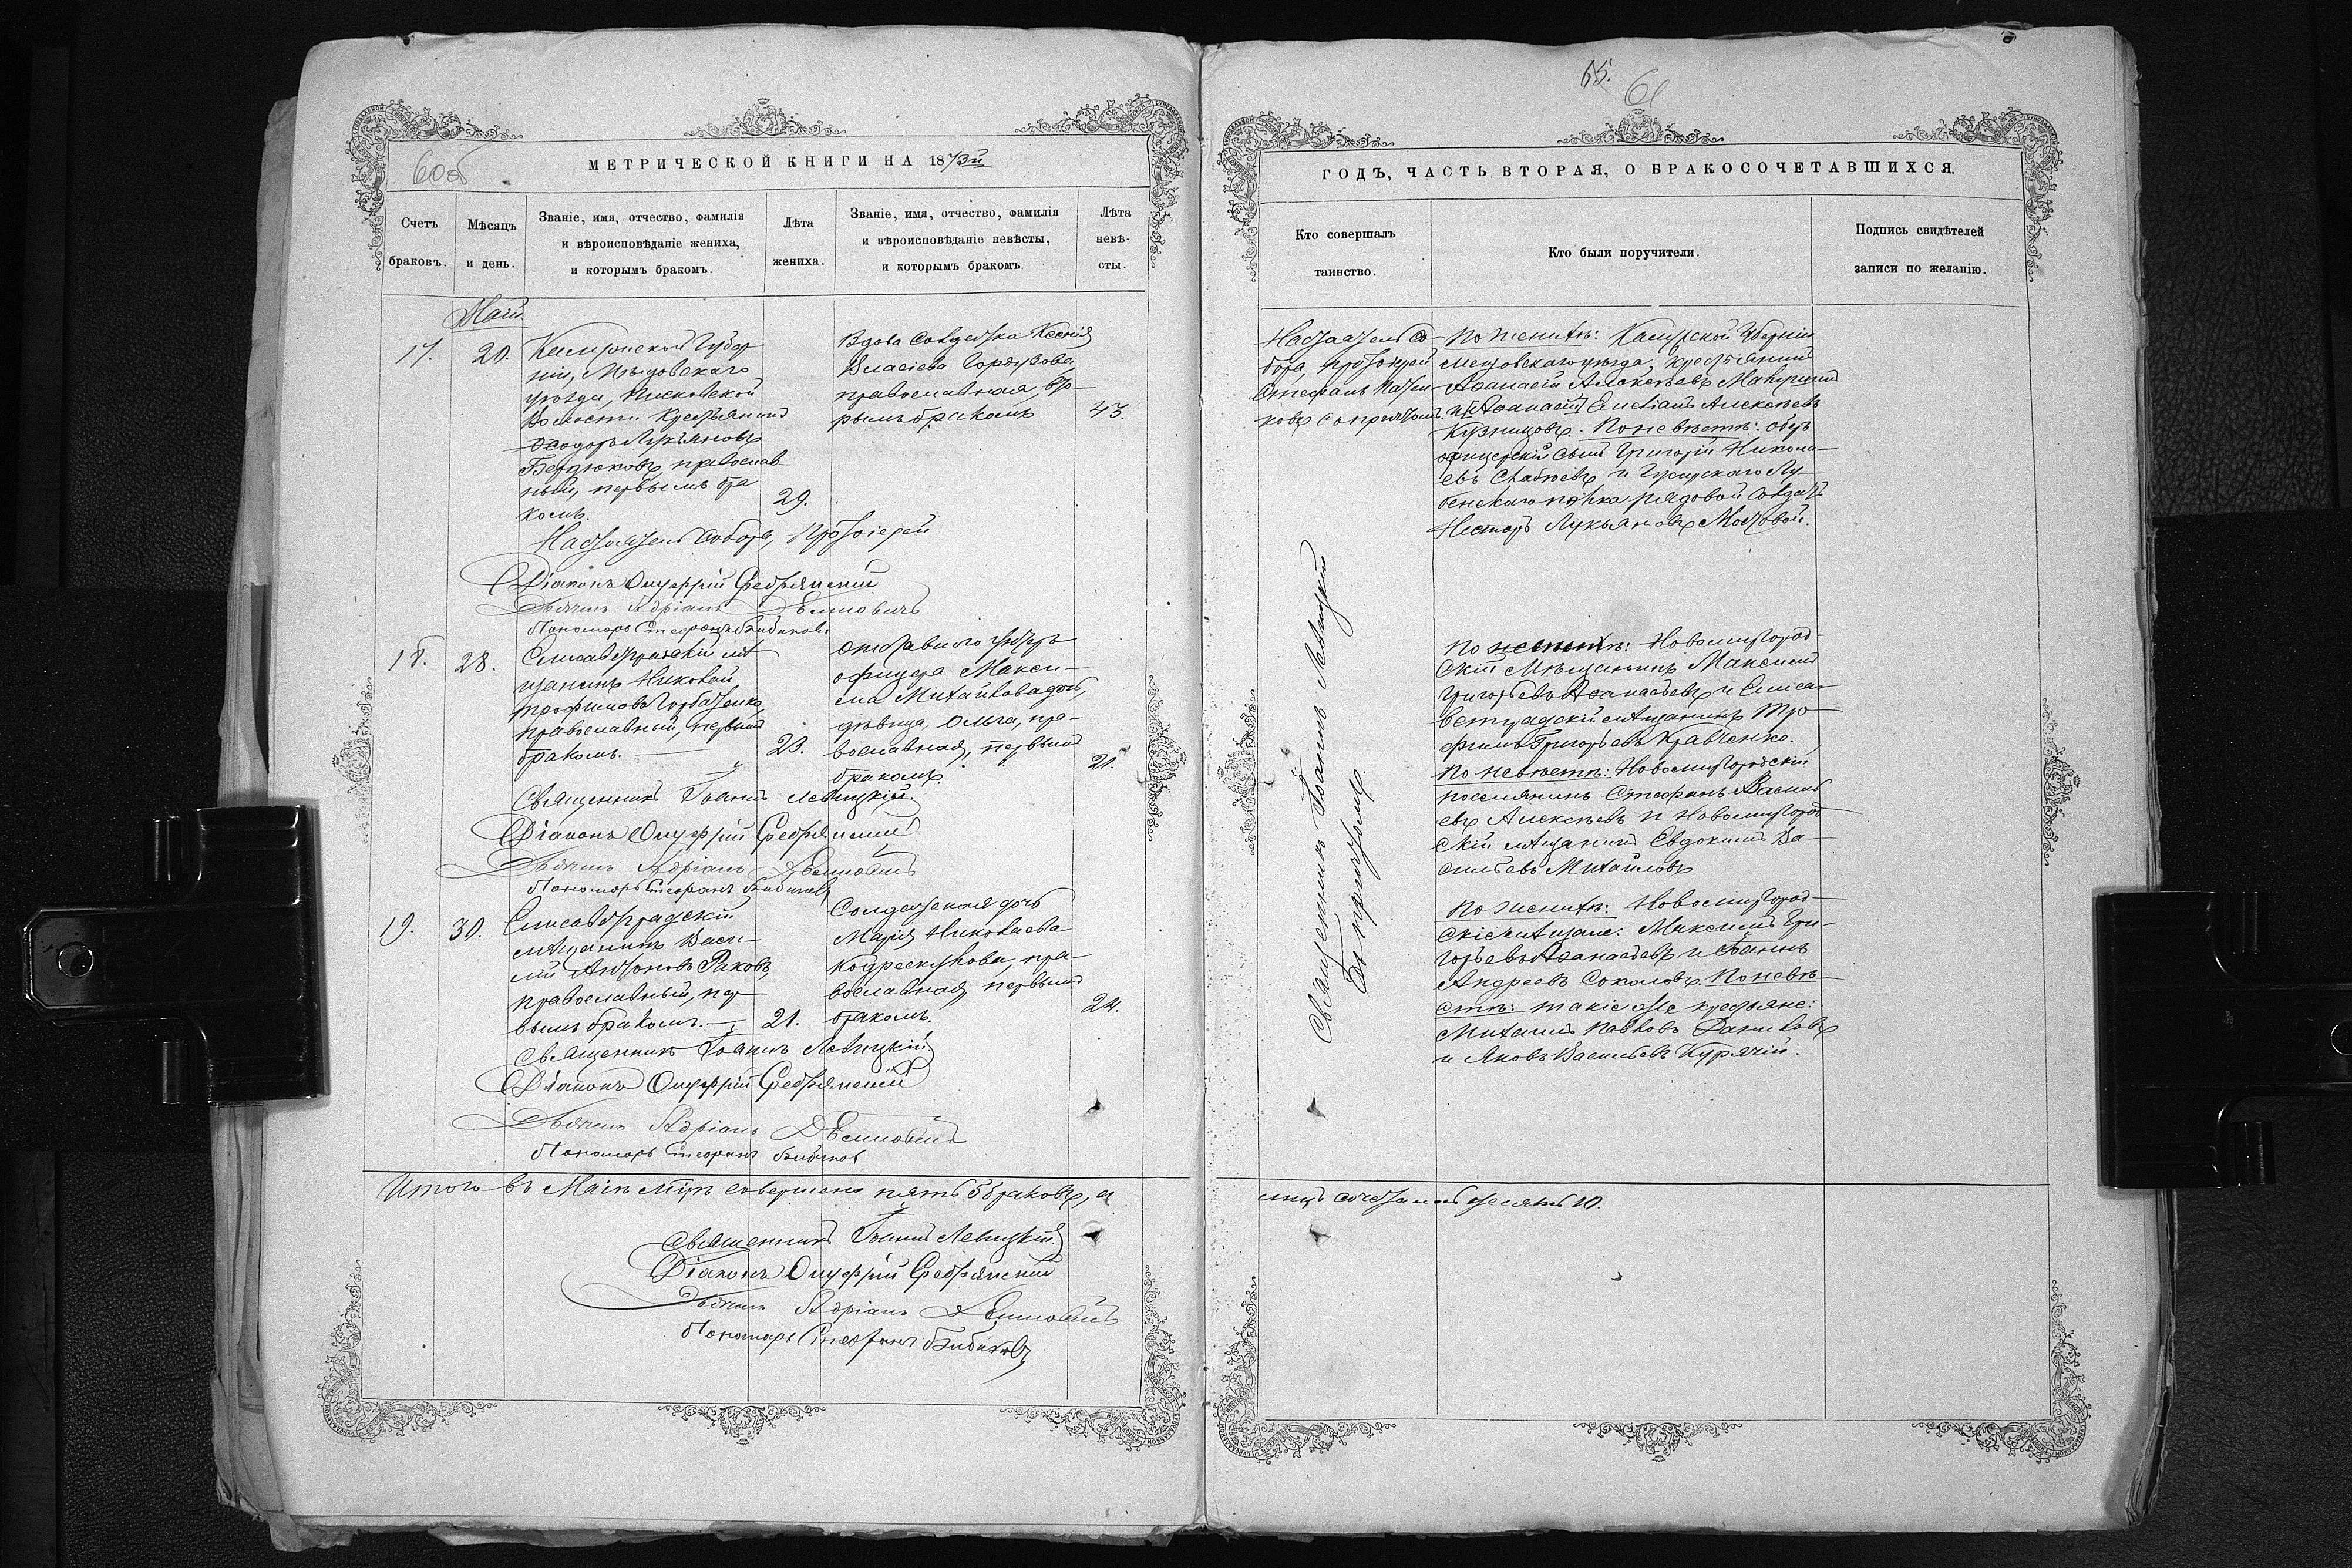 60об
МЕТРИЧЕСКОЙ КНИГИ НА 1873й
Счетъ браковъ.
Мѣсяцъ и день.
Званіе, имя, отчество, фамилія
и вѣроисповѣданіе жениха,
и которымъ бракомъ.
Лѣта жениха.
Званіе, имя, отчество, фамилія
и вѣроисповѣданіе невѣсты,
и которымъ бракомъ.
Лѣта невѣ-
сты.
Май
17.
20.
Калужской Губер
ніи, Мѣщовскаго
уѣзда,
Волости крестьянинъ
Ѳеодоръ Лукьяновъ
Бердюковъ, православ
ный, первымъ бра
комъ.
29.
Вдова Солдатка Ксенія
Власіева
православная, вто-
рымъ бракомъ
43.
Настоятель Собора, Протоіерей
Діаконъ Онуфрій Сребрянскій
Дьячекъ Адріанъ
Пономарь Стефанъ Бибиковъ
18.
28.
Елисаветградскій мѣ
щанинъ Николай
Трофимовъ Горбатенко,
православный, первымъ
бракомъ.
23.
Отставного унтеръ
офицера Макси-
ма Михайлова дочь,
дѣвица, Ольга, пра-
вославная, первымъ
бракомъ.
21.
Священникъ Іоаннъ Левицкій.
Діаконъ Онуфрій Сребрянскій
Дьячекъ Адріанъ
Пономарь Стефанъ Бибиковъ
19.
30.
Елисаветградскій
мѣщанинъ Васи-
лій Антоновъ Раковъ
православный, пер-
вымъ бракомъ.
21.
Солдатская дочь
Марія Николаева
пра-
вославная, первымъ
бракомъ.
24.
Священникъ Іоаннъ Левицкій
Діаконъ Онуфрій Сребрянскій
Дьячекъ Адріанъ
Пономарь Стефанъ Бибиковъ
Итого въ Маѣ мцѣ совершено пять 5 браковъ, а
Священникъ Іоаннъ Левицкій.
Діаконъ Онуфрій Сребрянскій
Дьячекъ Адріанъ
Пономарь Стефанъ Бибиковъ
65.
61
ГОДЪ, ЧАСТЬ ВТОРАЯ, О БРАКОСОЧЕТАВШИХСЯ.
Кто совершалъ
таинство.
Кто были поручители.
Подпись свидѣтелей
записи по желанію.
Настоятель Со-
бора, Протоіерей
Стефанъ
ковъ съ причтомъ.
По женихѣ: Калужской Губерніи
Мещовскаго уѣзда, крестьянинъ
Аѳанасій Алексѣевъ
Алексѣевъ
Кузнецовъ. По невѣстѣ: оберъ
офицерскій сынъ Григорій Никола-
евъ и Гусарскаго Лу-
бенскаго полка рядовой солдатъ
Несторъ Лукьяновъ Мостовой.
Священникъ Іоаннъ Левицкій
съ причтомъ.
По женихѣ: Новомиргород-
скій Мѣщанинъ Максимъ
Григорьевъ Аѳанасьевъ и Елиса-
ветградскій мѣщанинъ Тро-
фимъ Григорьевъ Кравченко.
По невѣстѣ: Новомиргородскій
поселянинъ Стефанъ Василь
евъ Алексѣевъ и Новомиргород
скій мѣщанинъ Евдокимъ Ва-
сильевъ Михайловъ
По женихѣ: Новомиргород-
скіе мѣщане: Максимъ Гри-
горьевъ Аѳанасьевъ и Іоаннъ
Андреевъ Соколовъ. По невѣ-
стѣ: такіе же крестьяне:
Михаилъ Павловъ Даниловъ
и Яковъ Васильевъ Курячій.
лицъ сочеталось десять 10.